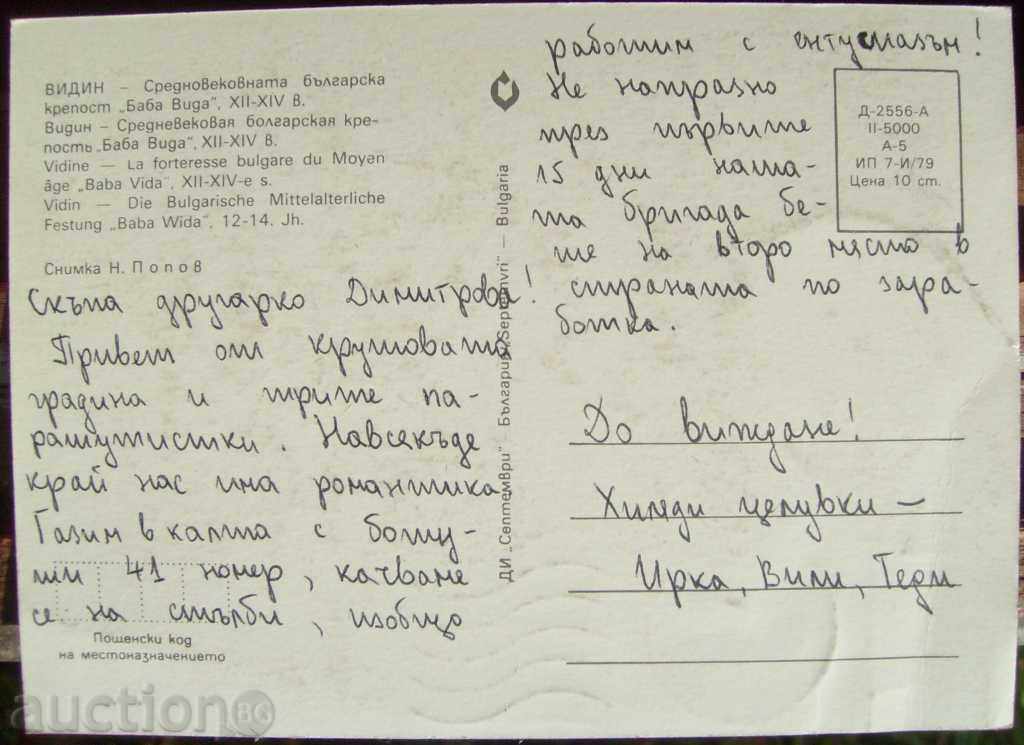 ВИДИН – Средновековната българска
крепост „Баба Вида", XII-XIV в.
Видин – Средневековая болгарская кре-
пость „Баба Вида", XII-XIV в.
Vidine — La forteresse bulgare du Moyen
âge „Baba Vida", XII-XIV-e s.
Vidin — Die Bulgarische Mittelalterliche
Festung „Baba Wida", 12-14. Jh.
Снимка Н. Попов
Скъпа другарко Димитрова!
Привет от крушовата
градина и трите па-
рашутистки. Навсекъде
край нас има романтика.
Газим в калта с боту-
ши 41 номер, качваме
се на стълби, изобщо
Пощенски код
на местоназначението
ДИ „Септември" – България „Septemvri" — Bulgaria
работим с ентусиазъм!
Не напразно
през първите
15 дни наша-
та бригада бе-
ше на второ място в
страната по зара-
ботка.
Д-2556-А
II-5000
А-5
ИП 7-И/79
Цена 10 ст.
До виждане!
Хиляди целувки –
Ирка, Вили, Теди
auction BG